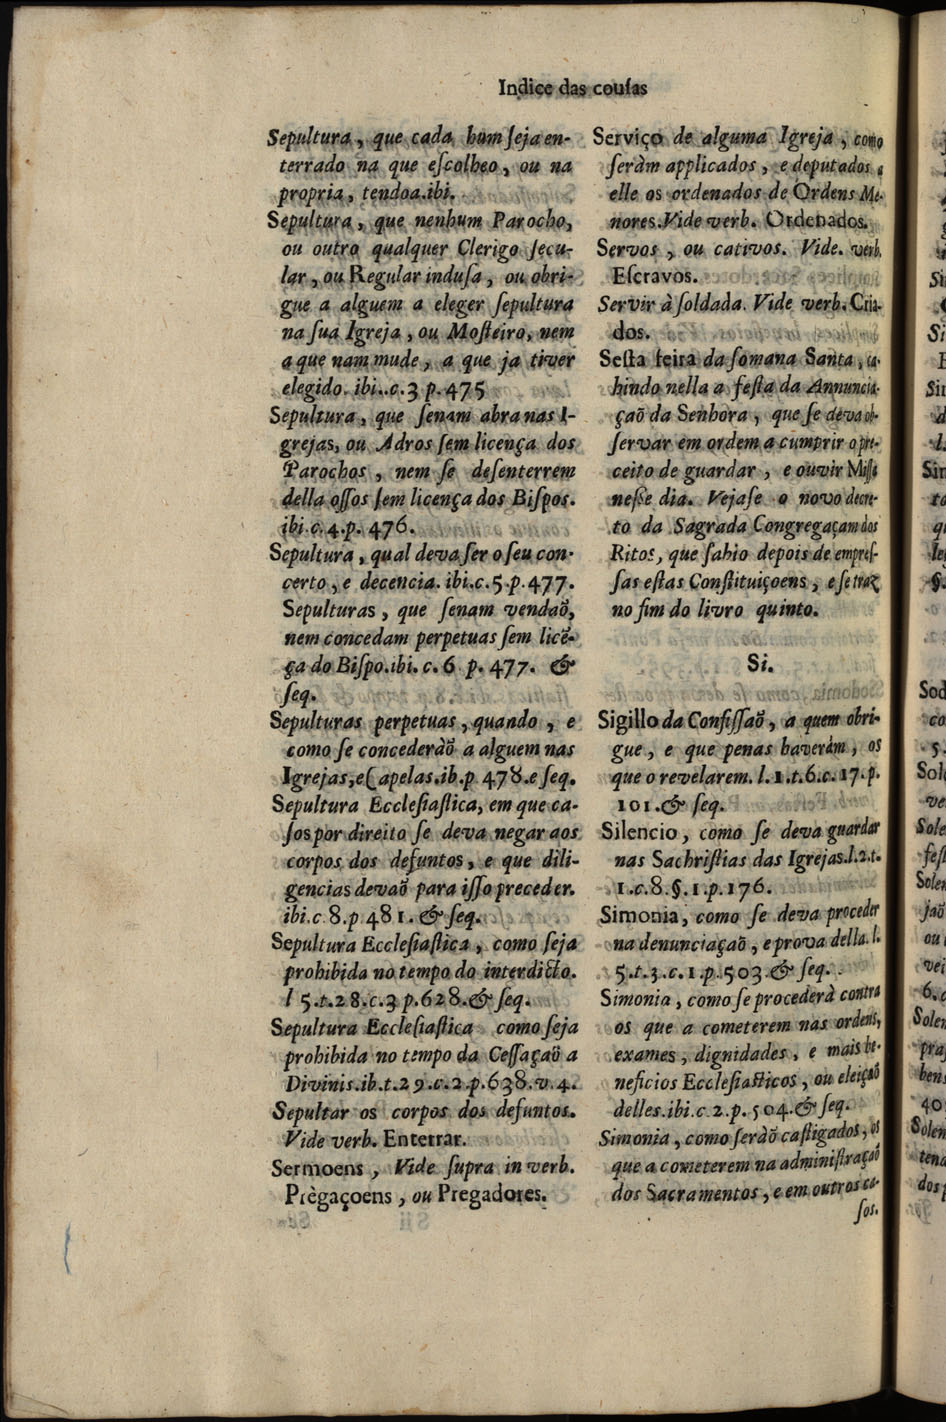 Indice das couſas
Sepultura, que cada hum ſeja en-
terrado na que eſcolheo, ou na
propria, tendoa.ibi.
Sepultura, que nenhum Parocho,
ou outro qualquer Clerigo ſecu-
lar, ou Regular induſa, ou obri-
gue a alguem a eleger ſepultura
na ſua Igreja, ou Moſteiro, nem
a que nam mude, a que ja tiver
elegido. ibi..c.3 p.475
Sepultura, que ſenam abra nas I-
grejas, ou Adros ſem licença dos
Parochos, nem ſe deſenterrem
della oſſos ſem licença dos Biſpos.
ibi.c.4.p. 476.
Sepultura, qual deva ſer o ſeu con-
certo, e decencia. ibi.c.5.p.477.
Sepulturas, que ſenam vendaõ,
nem concedam perpetuas ſem licẽ-
ça do Biſpo.ibi. c. 6 p. 477. &
ſeq.
Sepulturas perpetuas, quando, e
como ſe concederàõ a alguem nas
Igrejas, e Capelas.ib.p 478.e ſeq.
Sepultura Eccleſiaſtica, em que ca-
ſos por direito ſe deva negar aos
corpos dos defuntos, e que dili-
gencias devaõ para iſſo preceder.
ibi.c.8.p 481. & ſeq.
Sepultura Eccleſiaſtica, como ſeja
prohibida no tempo do interdicto.
l 5.t.28.c.3 p.628.& ſeq.
Sepultura Eccleſiaſtica como ſeja
prohibida no tempo da Ceſſaçaõ a
Divinis.ib.t.29.c.2.p.638.v.4.
Sepultar os corpos dos defuntos.
Vide verb. Enterrar.
Sermoens, Vide ſupra in verb.
Prègaçoens, ou Pregadores.
Serviço de alguma Igreja, como
ſeràm applicados, e deputados a
elle os ordenados de Ordens Me-
nores.Vide verb. Ordenados.
Servos, ou cativos. Vide. verb.
Eſcravos.
Servir à ſoldada. Vide verb. Cria-
dos.
Seſta feira da ſomana Santa, ca-
hindo nella a feſta da Annuncia-
çaõ da Senhora, que ſe deva ob-
ſervar em ordem a cumprir o pre-
ceito de guardar, e ouvir Miſſa
neſſe dia. Vejaſe o novo decre-
to da Sagrada Congregaçam dos
Ritos, que ſahio depois de empreſ-
ſas eſtas Conſtituiçoens, e ſe traz
no fim do livro quinto.
Si.
Sigillo da Confiſſaõ, a quem obri-
gue, e que penas haveràm, os
que o revelarem. l.1.t.6.c.17.p.
101.& ſeq.
Silencio, como ſe deva guardar
nas Sachriſtias das Igrejas.l.2.t.
1.c.8.§.1.p.176.
Simonia, como ſe deva proceder
na denunciaçaõ, e prova della. l.
5.t.3.c.1.p.503.& ſeq.
Simonia, como ſe procederà contra
os que a cometerem nas ordens,
exames, dignidades, e mais be-
neficios Eccleſiaſticos, ou eleiçaõ
delles.ibi.c 2.p.504.& ſeq.
Simonia, como ſeràõ caſtigados, os
que a cometerem na adminiſtraçaõ
dos Sacramentos, e em outros ca-
ſos.